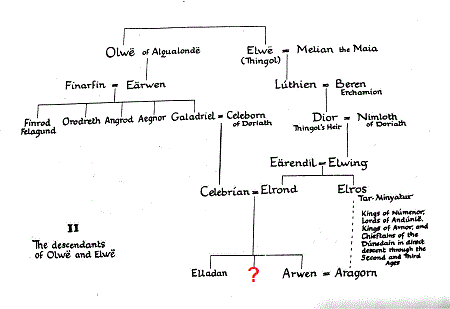 Olwë of Alqualondë
Elwë = Melian the Maia
(Thingol)
Finarfin = Eärwen
Lúthien = Beren
Erchamion
Finrod
Felagund
Orodreth
Angrod
Aegnor
Galadriel = Celeborn
of Doriath
Dior = Nimloth
Thingol's Heir
of Doriath
Eärendil = Elwing
Celebrían = Elrond
Elros
Tar-Minyatur
Kings of Númenor,
Lords of Andúnië,
Kings of Arnor, and
Chieftains of the
Dúnedain in direct
descent through the
Second and Third
Ages
II
The descendants
of Olwë and Elwë
Elladan
?
Arwen = Aragorn